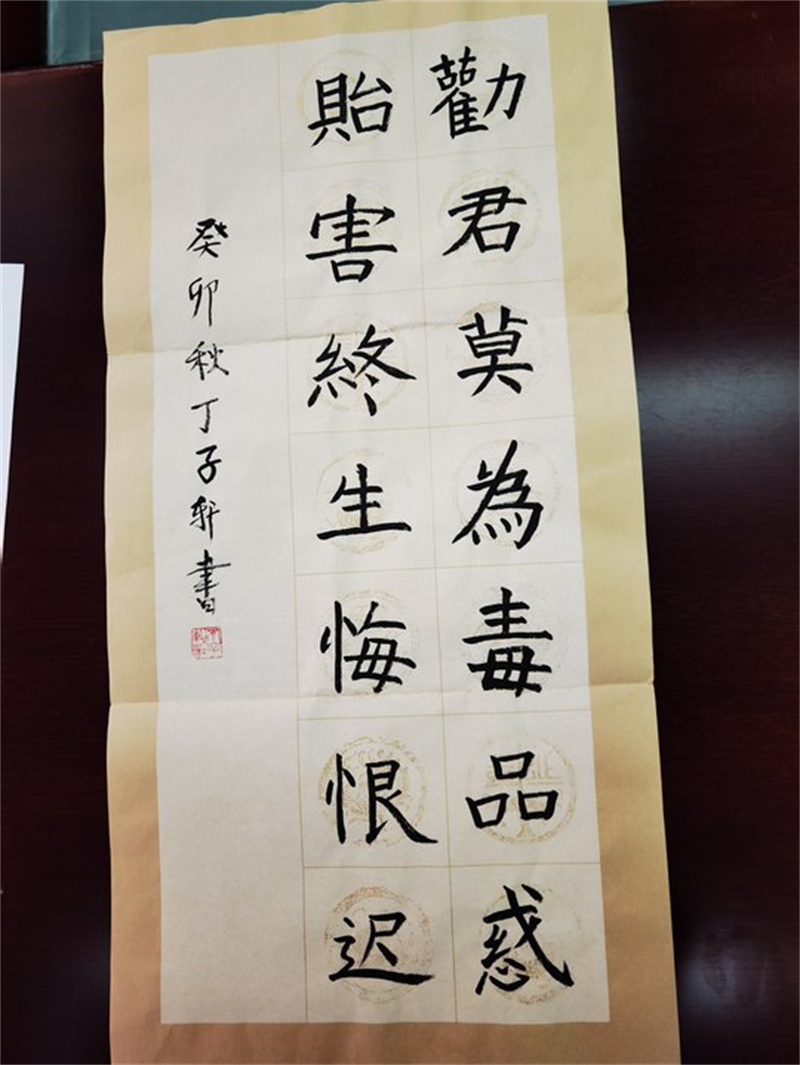 勸君莫為毒品惑
貽害終生悔恨迟
癸卯秋丁子軒書